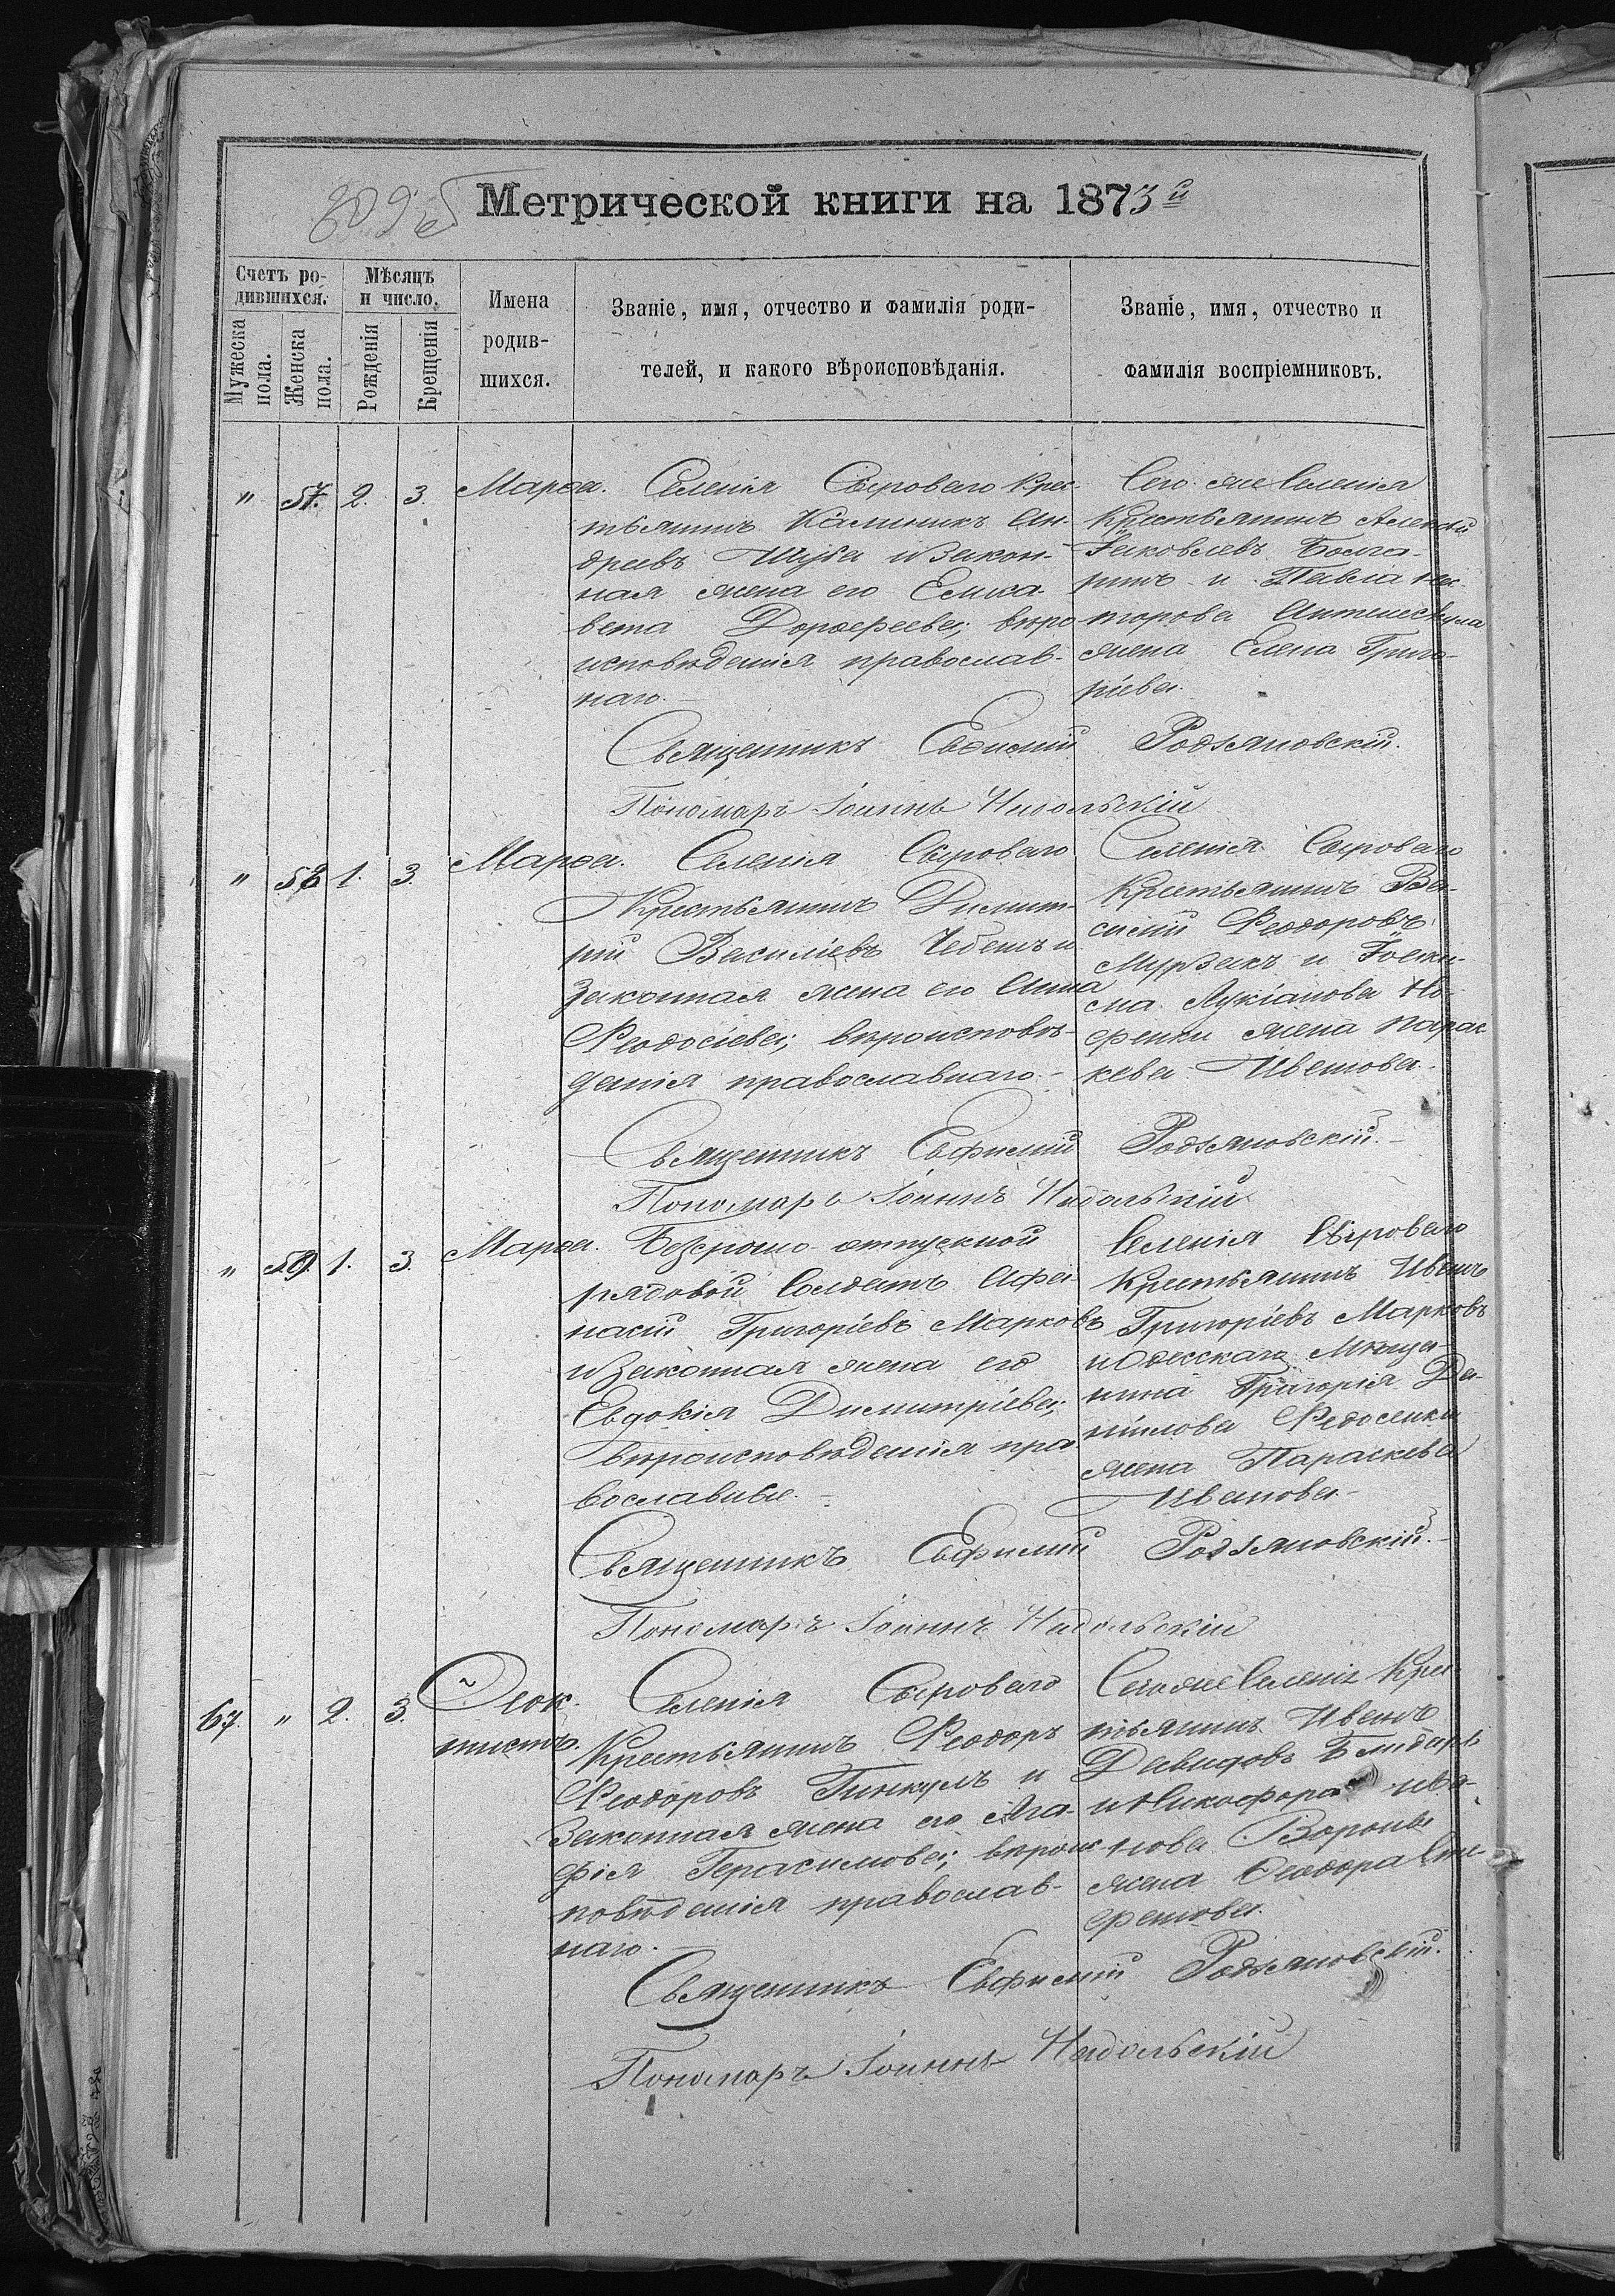 809 об
Метрической книги на 1873й
Счетъ ро-
дившихся.
Мужеска
пола.
Женска
пола.
Мѣсяцъ
и число.
Рожденія
Крещенія
Имена
родив-
шихся.
Званіе, имя, отчество и фамилія роди-
телей, и какого вѣроисповѣданія.
Званіе, имя, отчество и
фамилія воспріемниковъ.
" 57. 2. 3. Марѳа.
Селенія Сыроваго Крес-
тьянинъ Калиникъ Ан-
дреевъ Шуба и закон-
ная жена его Елиса-
вета Дорофеева, вѣро
исповѣданія православ-
наго.
Сего же Селенія
Крестьянинъ Алексій
Іаковлевъ Болга-
ринъ и Павла Нес-
торова
жена Елена Григо-
ріева.
Священникъ Евѳимій Родзяновскій.
Пономарь Іоаннъ Надольскій
" 58 1. 3. Марѳа.
Селенія Сыроваго
Крестьянинъ Димит-
рій Василіевъ Чебанъ и
Законная жена его Анна
Феодосіева, вѣроисповѣ-
данія православнаго.
Селенія Сыроваго
Крестьянинъ Ва-
силій Феодоровъ
Мурзакъ и Іоаки-
ма Лукіанова
жена Парас
кева Иванова.
Священникъ Евфимій Родзяновскій.
Пономарь Іоаннъ Надольскій
" 59. 1. 3. Марѳа.
Безсрочно-отпускной
рядовой Солдатъ Афа-
насій Григоріевъ Марковъ
и Законная жена его
Евдокія Димитріева,
вѣроисповѣданія пра
вославные.
Селенія Сыроваго
Крестьянинъ Иванъ
Григоріевъ Марковъ
и Одесскаго Мѣща-
нина Григорія Да-
нилова Федосенки
жена Параскева
Иванова
Священникъ Евфимій Родзяновскій.
Пономарь Іоаннъ Надольскій
67. " 2. 3. Ѳеок-
тистъ.
Селенія Сыроваго
Крестьянинъ Феодоръ
Феодоровъ Гинкулъ и
Законная жена его Ага-
фія Герасимова, вѣроис
повѣданія православ-
наго.
Сего же Селенія Крес
тьянинъ Иванъ
Давидовъ
и Никофора Ива-
нова Вороны
жена Феодора Сте-
фанова.
Священникъ Евфимій Родзяновскій.
Пономарь Іоаннъ Надольскій